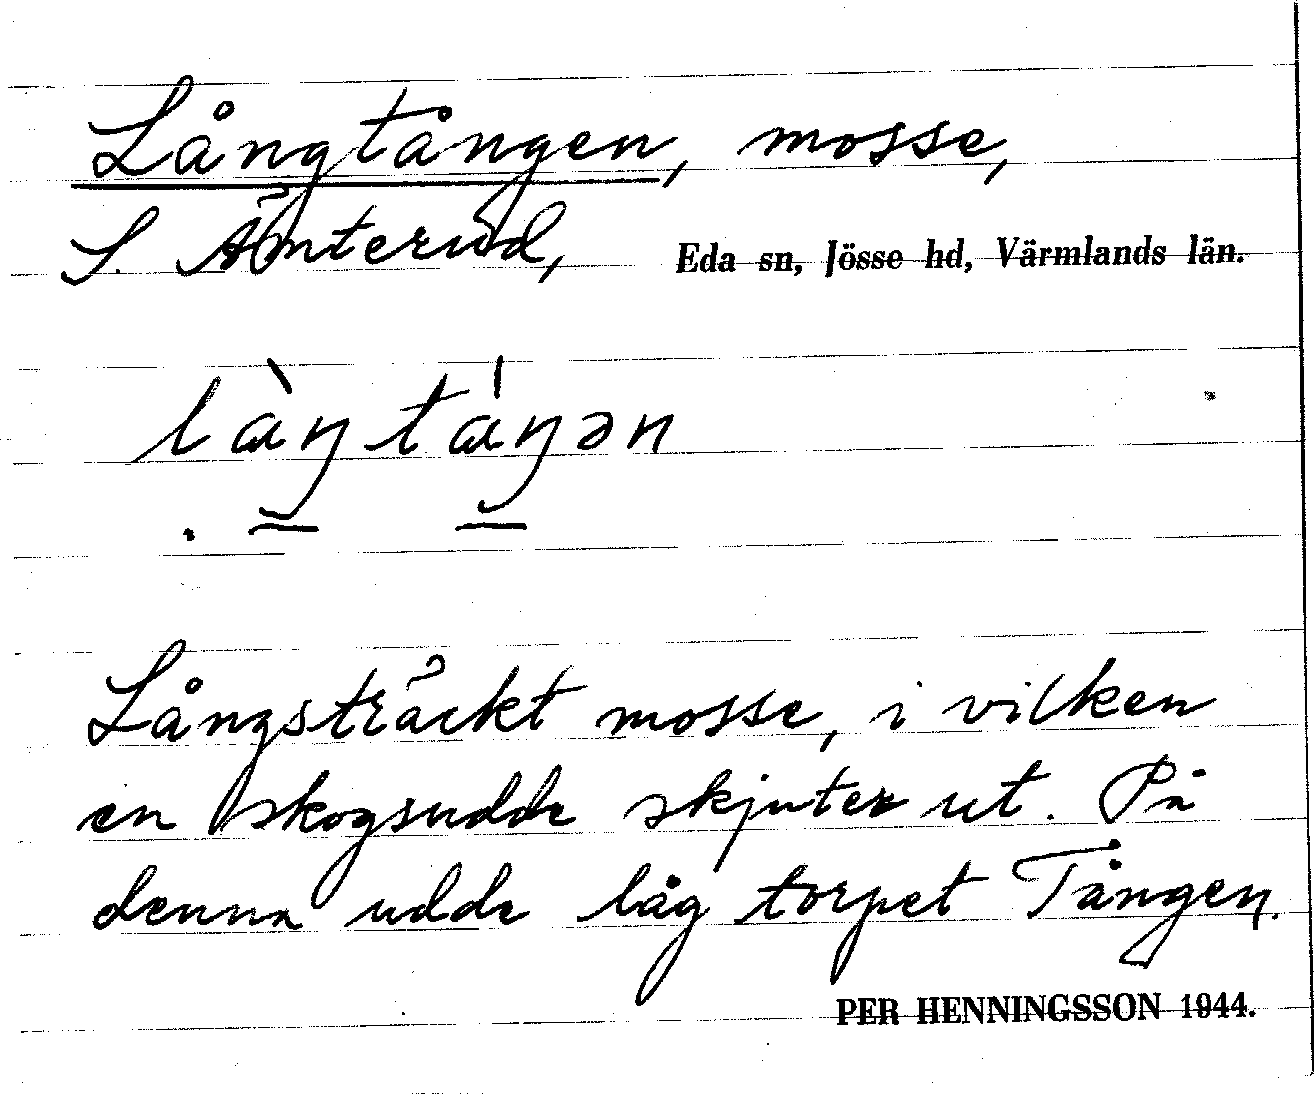 Långtången, mosse,
S. Ämterud, Eda sn, Jösse hd, Värmlands län.
làŋtáŋən
Långsträckt mosse, i vilken
en skogsudde skjuter ut. På
denna udde låg torpet Tången.
PER HENNINGSSON 1944.